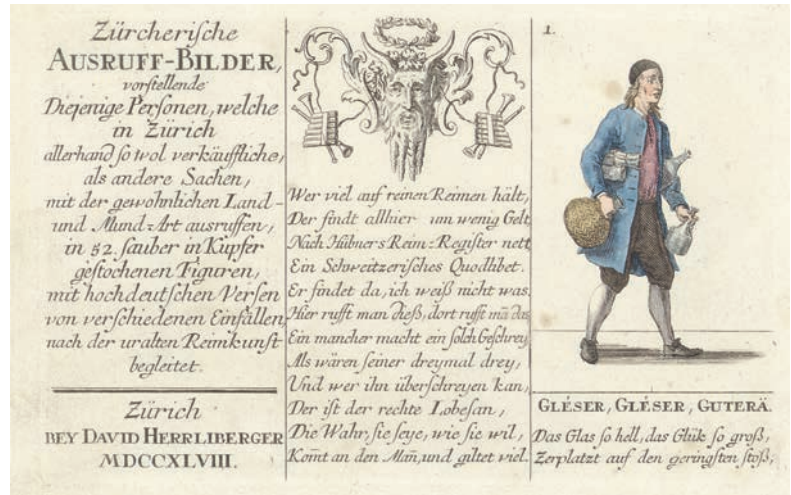 Zürcherische
AUSRUFF-BILDER,
vorstellende
Diejenige Personen, welche
in Zürich
allerhand so wol verkäuffliche,
als andere Sachen,
mit der gewohnlichen Land-
und Mund-Art ausruffen,
in 52. sauber in Kupfer
gestochenen Figuren,
mit hochdeutschen Versen
von verschiedenen Einfällen,
nach der uralten Reimkunst
begleitet.
Zürich
BEY DAVID HERRLIBERGER
MDCCXLVIII.
Wer viel auf reinen Reimen hält,
Der findt allhier um wenig Gelt
Nach Hübners Reim-Register nett
Ein Schweitzerisches Quodlibet.
Er findet da, ich weiß nicht was.
Hier rufft man dieß, dort rufft mã das
Ein mancher macht ein solch Geschrey
Als wären seiner dreymal drey,
Und wer ihn überschreyen kan,
Der ist der rechte Lobesan,
Die Wahr, sie seye, wie sie wil,
Kom̃t an den Mañ, und giltet viel.
1.
GLÉSER, GLÉSER, GUTERÄ.
Das Glas so hell, das Glük so groß,
Zerplatzt auf den geringsten stoß,